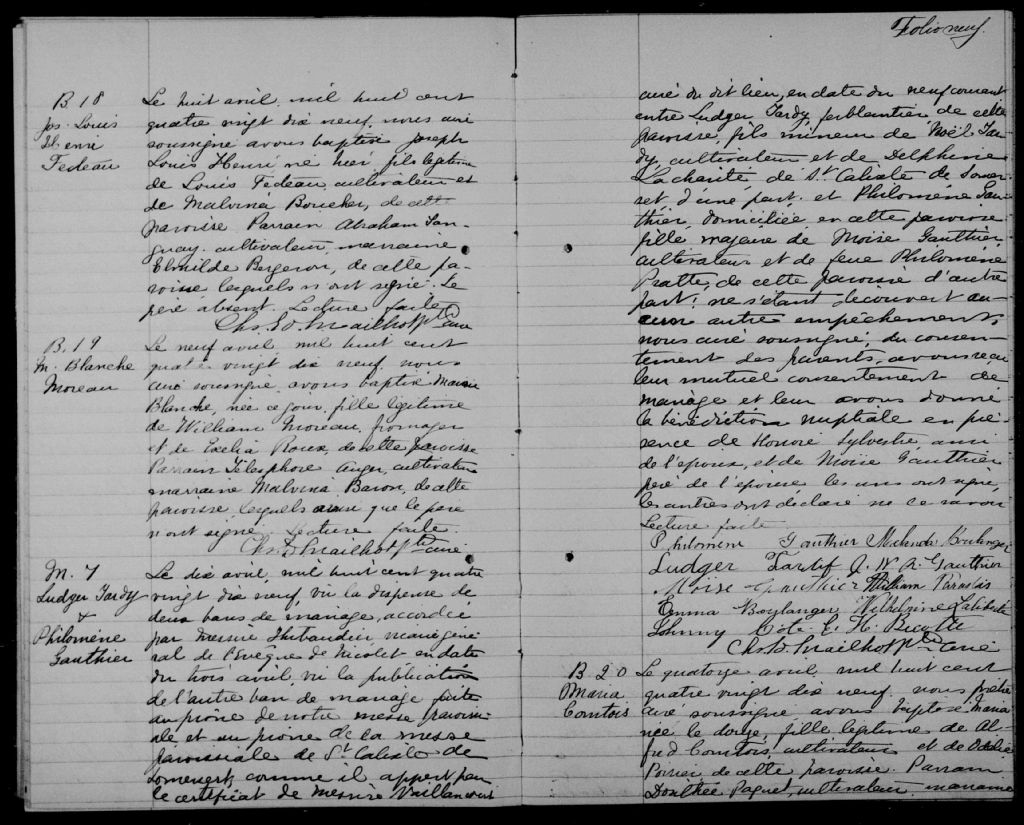 B 18
Jos. Louis
Henri
Fedeau
Le huit avril, mil huit cent
quatre vingt dix neuf, nous curé
soussigné avons baptisé Joseph
Louis Henri né hier fils légitime
de Louis Fedeau, cultivateur et
de Malvina Boucher, de cette
paroisse Parrain Abraham Tan-
guay, cultivateur, marraine
Bergeron, de cette pa-
roisse lesquels n'ont signé. Le
père absent. Lecture faite
Chs. Ed. Mailhot ptre curé
B. 19
M. Blanche
Moreau
Le neuf avril mil huit cent
quatre vingt dix neuf, nous
curé soussigné avons baptisé Marie
Blanche, née ce jour, fille légitime
de William Moreau, fromager
et de Exélia Roux, de cette paroisse
Parrain Télesphore Auger, cultivateur
marraine Malvina Baron, de cette
paroisse lesquels ainsi que le père
n'ont signé. Lecture faite.
Chs. E. Mailhot ptre curé
M. 7
Ludger Tardy
+
Philomène
Gauthier
Le dix avril, mil huit cent quatre
vingt dix neuf, vu la dispense de
deux bans de mariage, accordée
par Messire Thibaudier vicaire géné-
ral de l'Evêque de Nicolet en date
du trois avril, vu la publication
de l'autre ban de mariage faite
au prône de notre messe parois-
iale et au prône de la messe
paroissiale de St Calixte de
Somerset, comme il appert par
le certificat de Messire Vaillancourt
Folio neuf.
curé du dit lieu, en date du neuf courant
entre Ludger Tardy, ferblantier, de cette
paroisse, fils mineur de Noël Tar-
dy, cultivateur et de Delphine
Lacharité, de St Calixte de Somer-
set, d'une part, et Philomène Gau-
thier, domiciliée en cette paroisse
fille majeure de Moïse Gauthier
cultivateur et de feue Philomène
Pratte, de cette paroisse d'autre
part; ne s'étant découvert au-
cun autre empêchement,
nous curé soussigné, du consen-
tement des parents, avons reçu
leur mutuel consentement de
mariage et leur avons donné
la bénédiction nuptiale en pré-
sence de Honoré Sylvestre ami
de l'époux, et de Moïse Gauthier
père de l'épouse les uns ont signé,
les autres ont déclaré ne le savoir
Lecture faite
Philomène Gauthier Melinda Boulanger
Ludger Tardif J. W. A. Gauthier
Moise Gauthier William
Emma Boulanger Wilhelmine Laliberté
Johnny Coté E. H. Ricotte
Chs. E. Mailhot ptre curé
B 20
Maria
Comtois
Le quatorze avril, mil huit cent
quatre vingt dix neuf, nous prêtre
curé soussigné avons baptisé Maria
née le douze, fille légitime de Al-
fred Comtois, cultivateur et de Odélie
Poirier de cette paroisse. Parrain
Dosithée Paquet, cultivateur, marraine